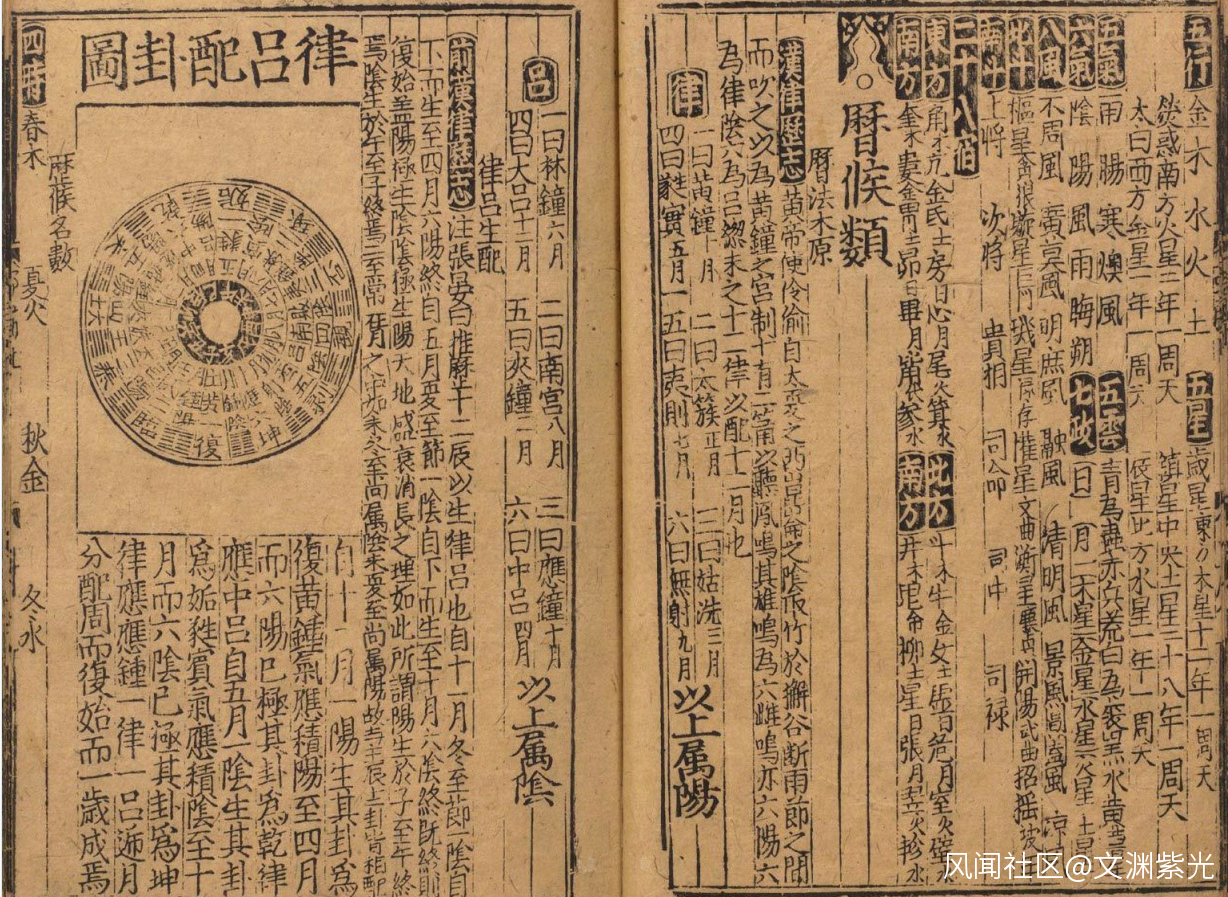 五行 金 木 水 火 土 五星 歲星東方木星十二年一周天
熒惑南方火星二年一周天 鎮星中央土星二十八年一周天
太白西方金星一年一周天 辰星北方水星一年一周天
五氣 雨 暘 寒 燠 風 五雲 青為蟲赤兵荒白為喪黑水黃
六氣 陰 陽 風 雨 晦 朔 七政 日 月 木星 金星 水星 火星 土星
八風 不周風 廣莫風 明庶風 融風 清明風 景風 涼
北斗 樞星 璇星 璣星 權星文曲 衡星 開陽武曲 招搖
南斗 上將 次將 貴相 司命 司中 司祿
二十八宿
東方 角木亢金氐土房日心月尾火箕水 北方 斗木牛金女土虛日危月室火壁
南方 奎木婁金胃土昴日畢月觜火參水 南方 井木鬼金柳土星日張月翌火軫水
曆候類
曆法本原
漢律歷志 黃帝使伶倫自大夏之西崑崙之陰取竹於嶰谷斷兩節之間
而吹之以為黃鐘之宮制十有二筩以聽鳳鳴其雄鳴為六雌鳴亦六陽六
為律陰六為呂潔未之十二律以配十二月也
律 一曰黃鐘十一月 二曰太簇正月 三曰姑洗三月
四曰蕤賓五月 五曰夷則七月 六曰無射九月 以上属陽
呂 一曰林鐘六月 二曰南宮八月 三曰應鐘十月
四曰大呂十二月 五曰夾鐘二月 六曰中呂四月 以上属陰
律呂生配
前漢律歷志 注張晏曰推曆十二辰以生律呂也自十一月冬至節一陰自
下而生至四月六陽終自五月夏至節一陰自下而生至十月六陰終既終則
復始盖陽極生陰陰極生陽天地盛衰消長之理如此所謂陽生於子至午終
焉陰生於午至子終焉
律呂配卦圖
復
坤
剥
乾
姤
夬
泰
自十一月一陽生其卦爲
復黃鍾氣應積陽至四月
而六陽已極其卦爲乾律
應中呂自五月一陰生其卦
爲姤蕤賓氣應積陰至十
月而六陰已極其卦爲坤
律應應鍾一律一呂逓月
分配周而復始而一歲成焉
曆候名數
四時 春木 夏火 秋金 冬水
风闻社区@文渊紫光